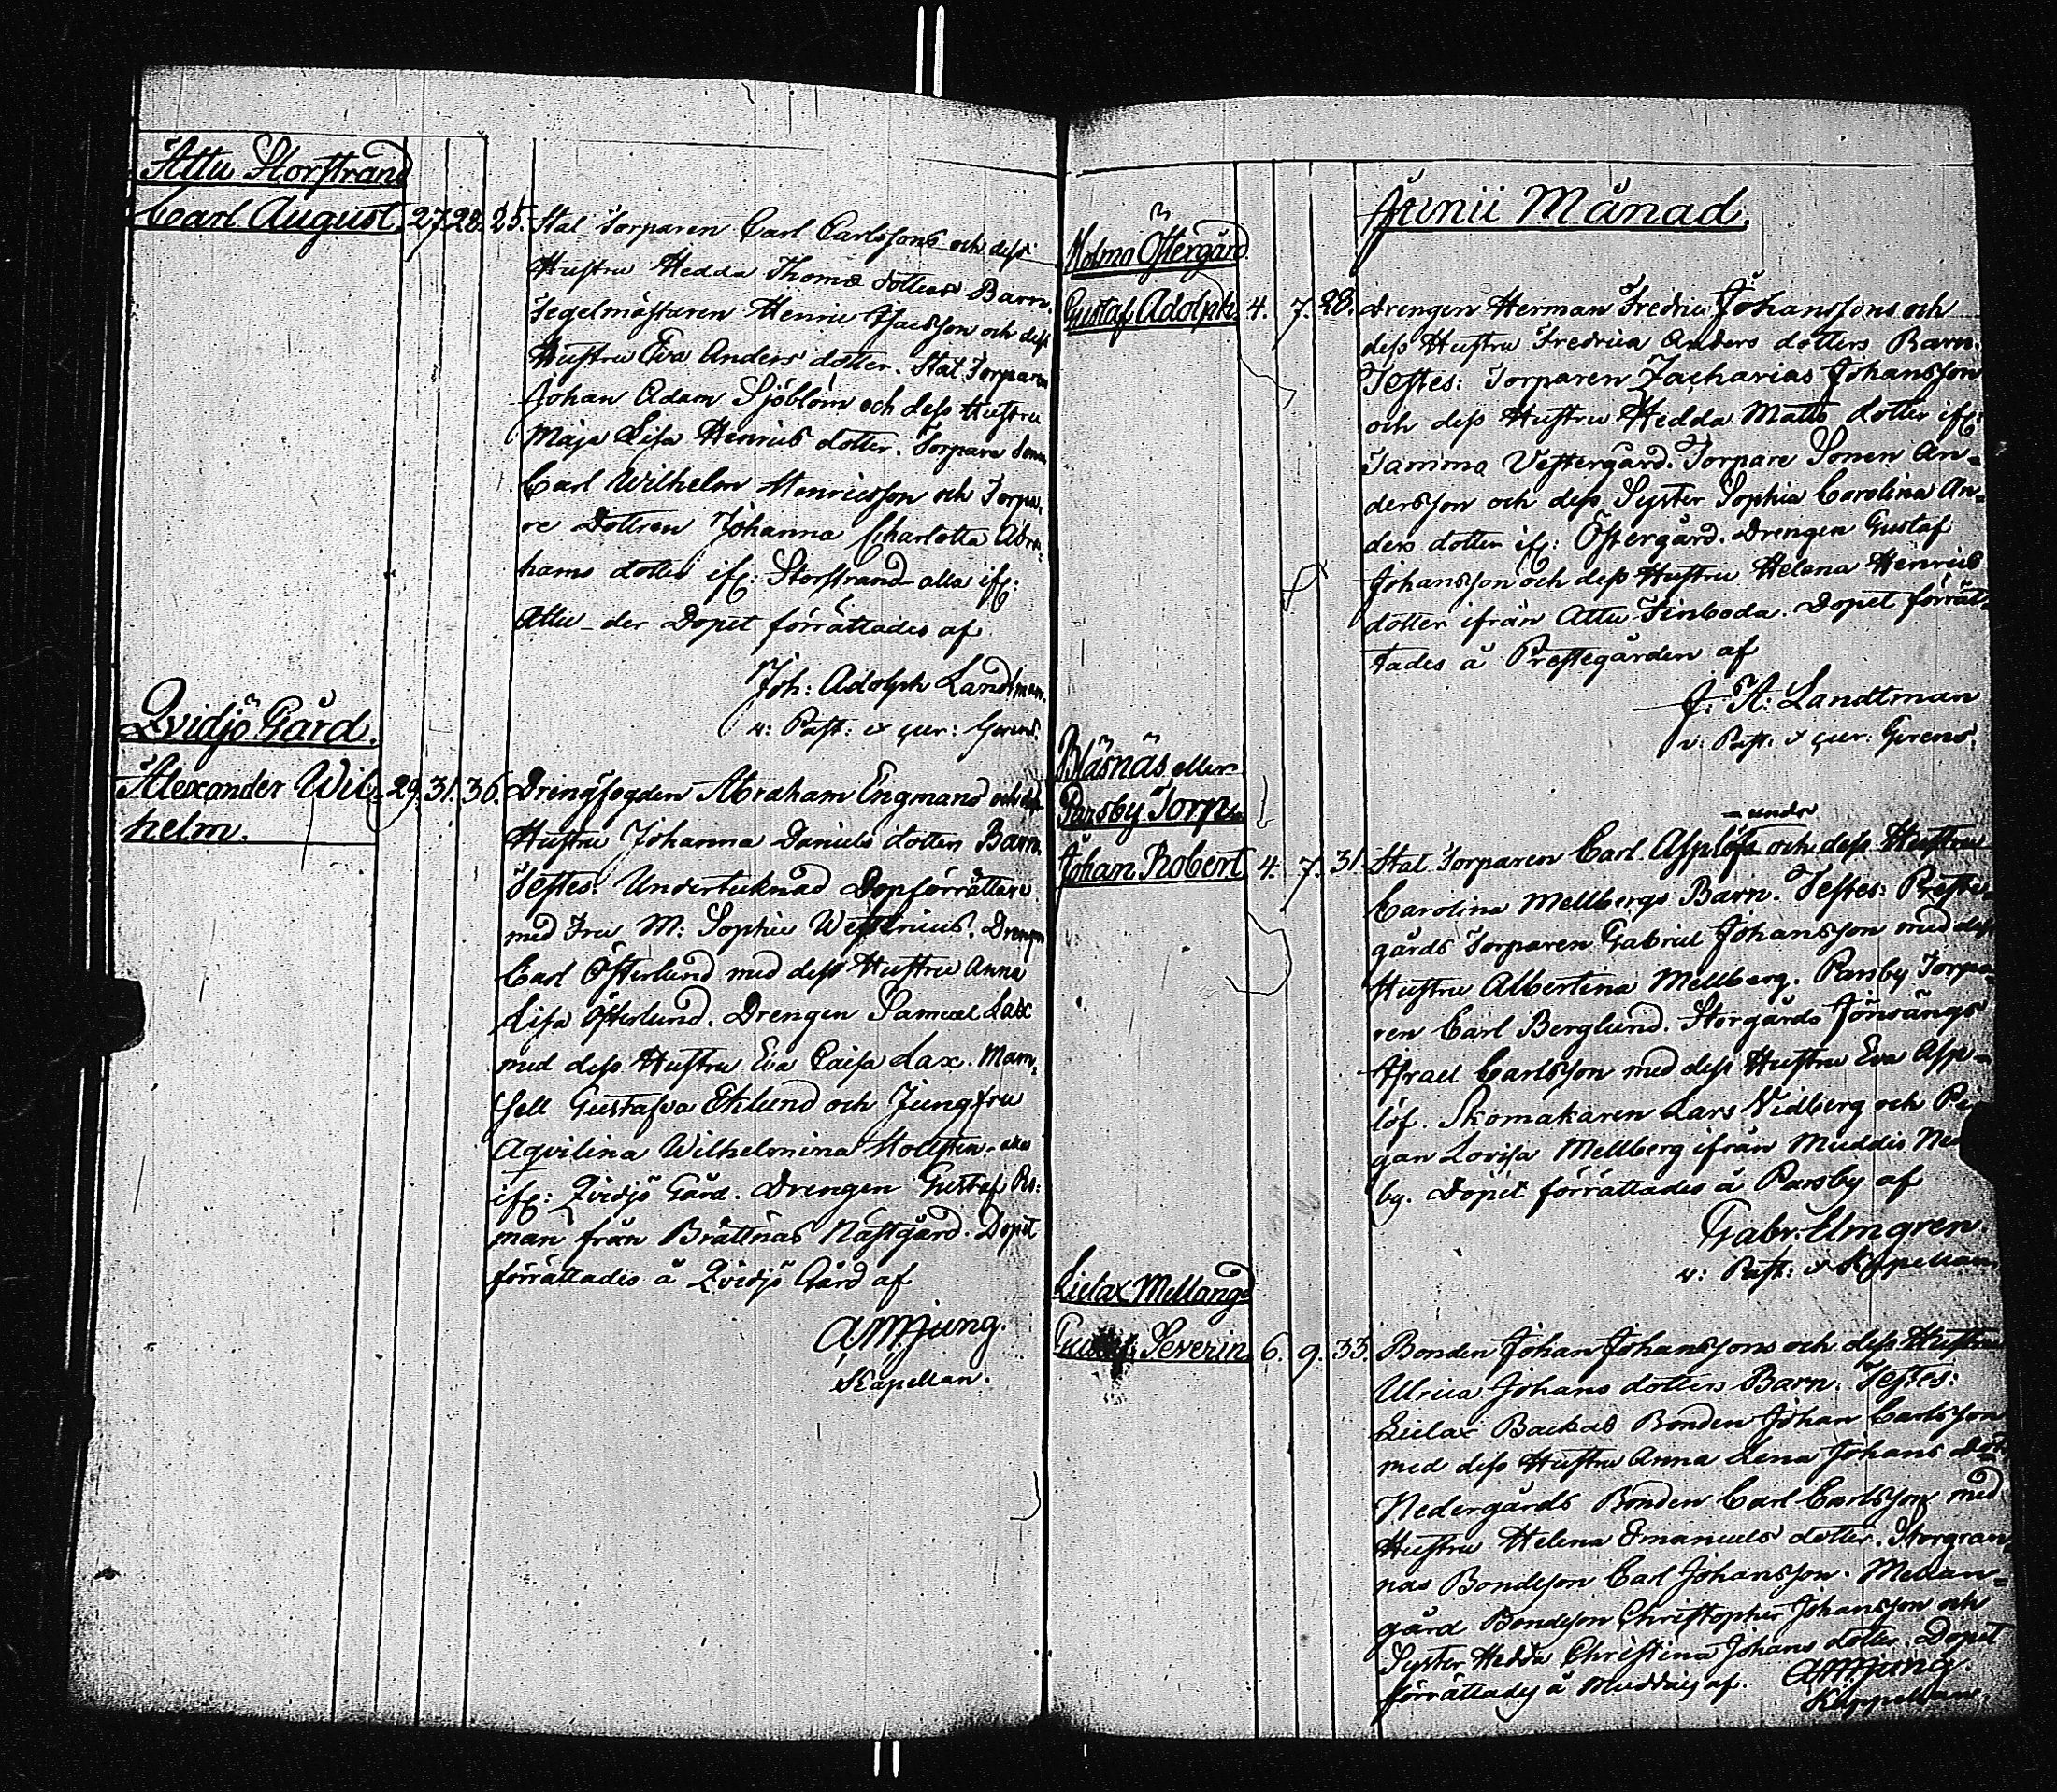 Attu Storstrand
Carl August. 27. 28. 25. Stat Torparen Carl Carlssons och dess
Hustru Hedda Thomæ dotters Barn.
Tegelmästaren Henric Isacsson och dess
Hustru Eva Anders dotter. Stat Torparen
Johan Adam Sjöblom och dess Hustru
Maja Lisa Henrics dotter. Torpare Sonen
Carl Wilhelm Henricsson och Torpa-
re Dottren Johanna Charlotta Abra-
hams dotter ifr: Storstrand alla ifr:
Attu der Dopet förrättades af
Joh: Adolph Landtman.
v: Past: & cur: Gerens.
Qvidjö Gård.
Alexander Wil- 29. 31. 36. Drengfogden Abraham Engmans och dess
helm.
Hustru Johanna Daniels dotters Barn.
Testes: Undertecknad Dopförrättare
med Fru M: Sophie Westenius. Drengen
Carl Österlund med dess Hustru Anna
Lisa Österlund. Drengen Samuel Lax
med dess Hustru Eva Caisa Lax. Mam-
sell Gustafva Eklund och Jungfru
Aqvilina Wilhelmina Hollsten. alla
ifr: Qvidjö Gård. Drengen Gustaf Ro-
man från Brättnäs Nästgård. Dopet
förrättades å Qvidjö Gård af
AMjung.
Kapellan.
Junii Månad.
Holma Östergård
Gustaf Adolph. 4. 7. 28. Drengen Herman Fredric Johanssons och
dess Hustru Fredrica Anders dotters Barn.
Testes: Torparen Zacharias Johansson
och dess Hustru Hedda Matts dotter ifr:
Samma Vestergård. Torpare Sonen An-
dersson och dess Syster Sophia Carolina An-
ders dotter ifr: Östergård. Drengen Gustaf
Johansson och dess Hustru Helena Henrics
dotter ifrån Attu Finboda. Dopet förrät-
tades å Prestegården af
J: A: Landtman
v: Past: & cur: Gerens.
Bläsnäs eller
Parsby Torp
under
Johan Robert 4. 7. 31. Stat Torparen Carl Applöfs och dess Hustru
Carolina Mellbergs Barn. Testes: Preste-
gårds Torparen Gabriel Johansson med dess
Hustru Albertina Mellberg. Parsby Torpa-
ren Carl Berglund. Storgårds
Israel Carlsson med dess Hustru Eva App-
löf. Skomakaren Lars Vidberg och Pi-
gan Lovisa Mellberg ifrån Muddis
by. Dopet förrättades å Parsby af
Gabr: Elmgren
v: Past: & Kappellan
Lielax Mellangd
Gustaf Severin. 6. 9. 33. Bonden Johan Johanssons och dess Hustru
Ulrica Johans dotters Barn. Testes:
Lielax Backas Bonden Johan Carlsson
med dess Hustru Anna Lena Johans dotr
Nedergårds Bonden Carl Carlsson med
Hustru Helena Emanuels dotter. Storgran-
nas Bondeson Carl Johansson. Mellan-
gård Bondeson Christopher Johansson och
Syster Hedda Christina Johans dotter. Dopet
förrättades å Muddais af. AMjung.
Kappellan.